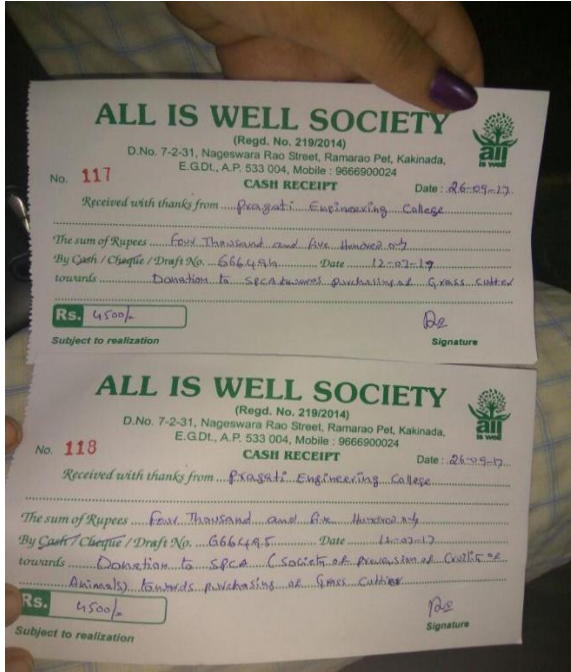 ALL IS WELL SOCIETY
(Regd. No. 219/2014)
D.No. 7-2-31, Nageswara Rao Street, Ramarao Pet, Kakinada,
E.G.Dt., A.P. 533 004, Mobile : 9666900024
all is well
No. 117 CASH RECEIPT Date : 26-09-17
Received with thanks from Pragati Engineering College
The sum of Rupees Four Thousand and five Hundred only
By Cash / Cheque / Draft No. 666494 Date 12-07-17
towards Donation to SPCA towards purchasing of Grass cutter
Rs. 4500/-
Subject to realization Signature
ALL IS WELL SOCIETY
(Regd. No. 219/2014)
D.No. 7-2-31, Nageswara Rao Street, Ramarao Pet, Kakinada,
E.G.Dt., A.P. 533 004, Mobile : 9666900024
all is well
No. 118 CASH RECEIPT Date : 26-09-17
Received with thanks from Pragati Engineering College
The sum of Rupees Four Thousand and five Hundred only
By Cash / Cheque / Draft No. 666495 Date
towards Donation to SPCA (Society of of
Animals) towards purchasing of Grass Cutter
Rs. 4500/-
Subject to realization Signature